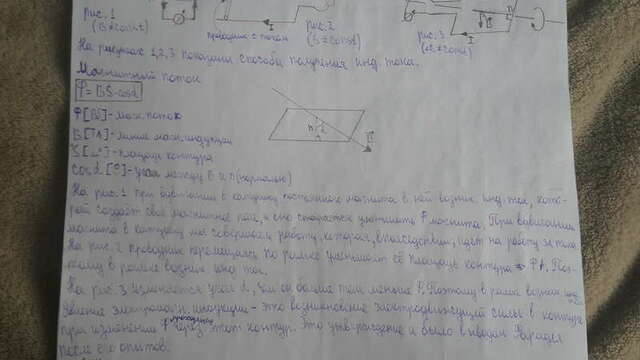 Рис. 1
(B ≠ const)
проводник с током
I
Рис. 2
(S ≠ const)
I
Рис. 3
(α ≠ const)
На рисунках 1, 2, 3 показаны способы получения инд. тока.
Магнитный поток
Φ = BS·cosα
Φ [Вб] - магн. поток
B [Тл] - магн. индукции
S [м²] - площадь контура
cosα [°] - угол между B и n (нормалью)
n
α
B
На рис. 1 при вдвигании в катушку постоянного магнита в ней возник. инд. ток, кото-
рый создает своё магнитное поле, и оно старается уменьшить Φ магнита. При вдвигании
магнита в катушку мы совершаем работу, которая, впоследствии, идет на работу эл. тока.
На рис. 2 проводник перемещаясь по рамке уменьшает её площадь контура ⇒ Поэ-
тому в рамке возник инд. ток.
На рис. 3 изменяется угол α, чем он больше тем меньше Φ. Поэтому в рамке возник. инд.
Явление электромагн. индукции - это возникновение электродвижущей силы в контуре
при изменении Φ через этот контур. Это утверждение и было выводом Фарадея
после его опытов.